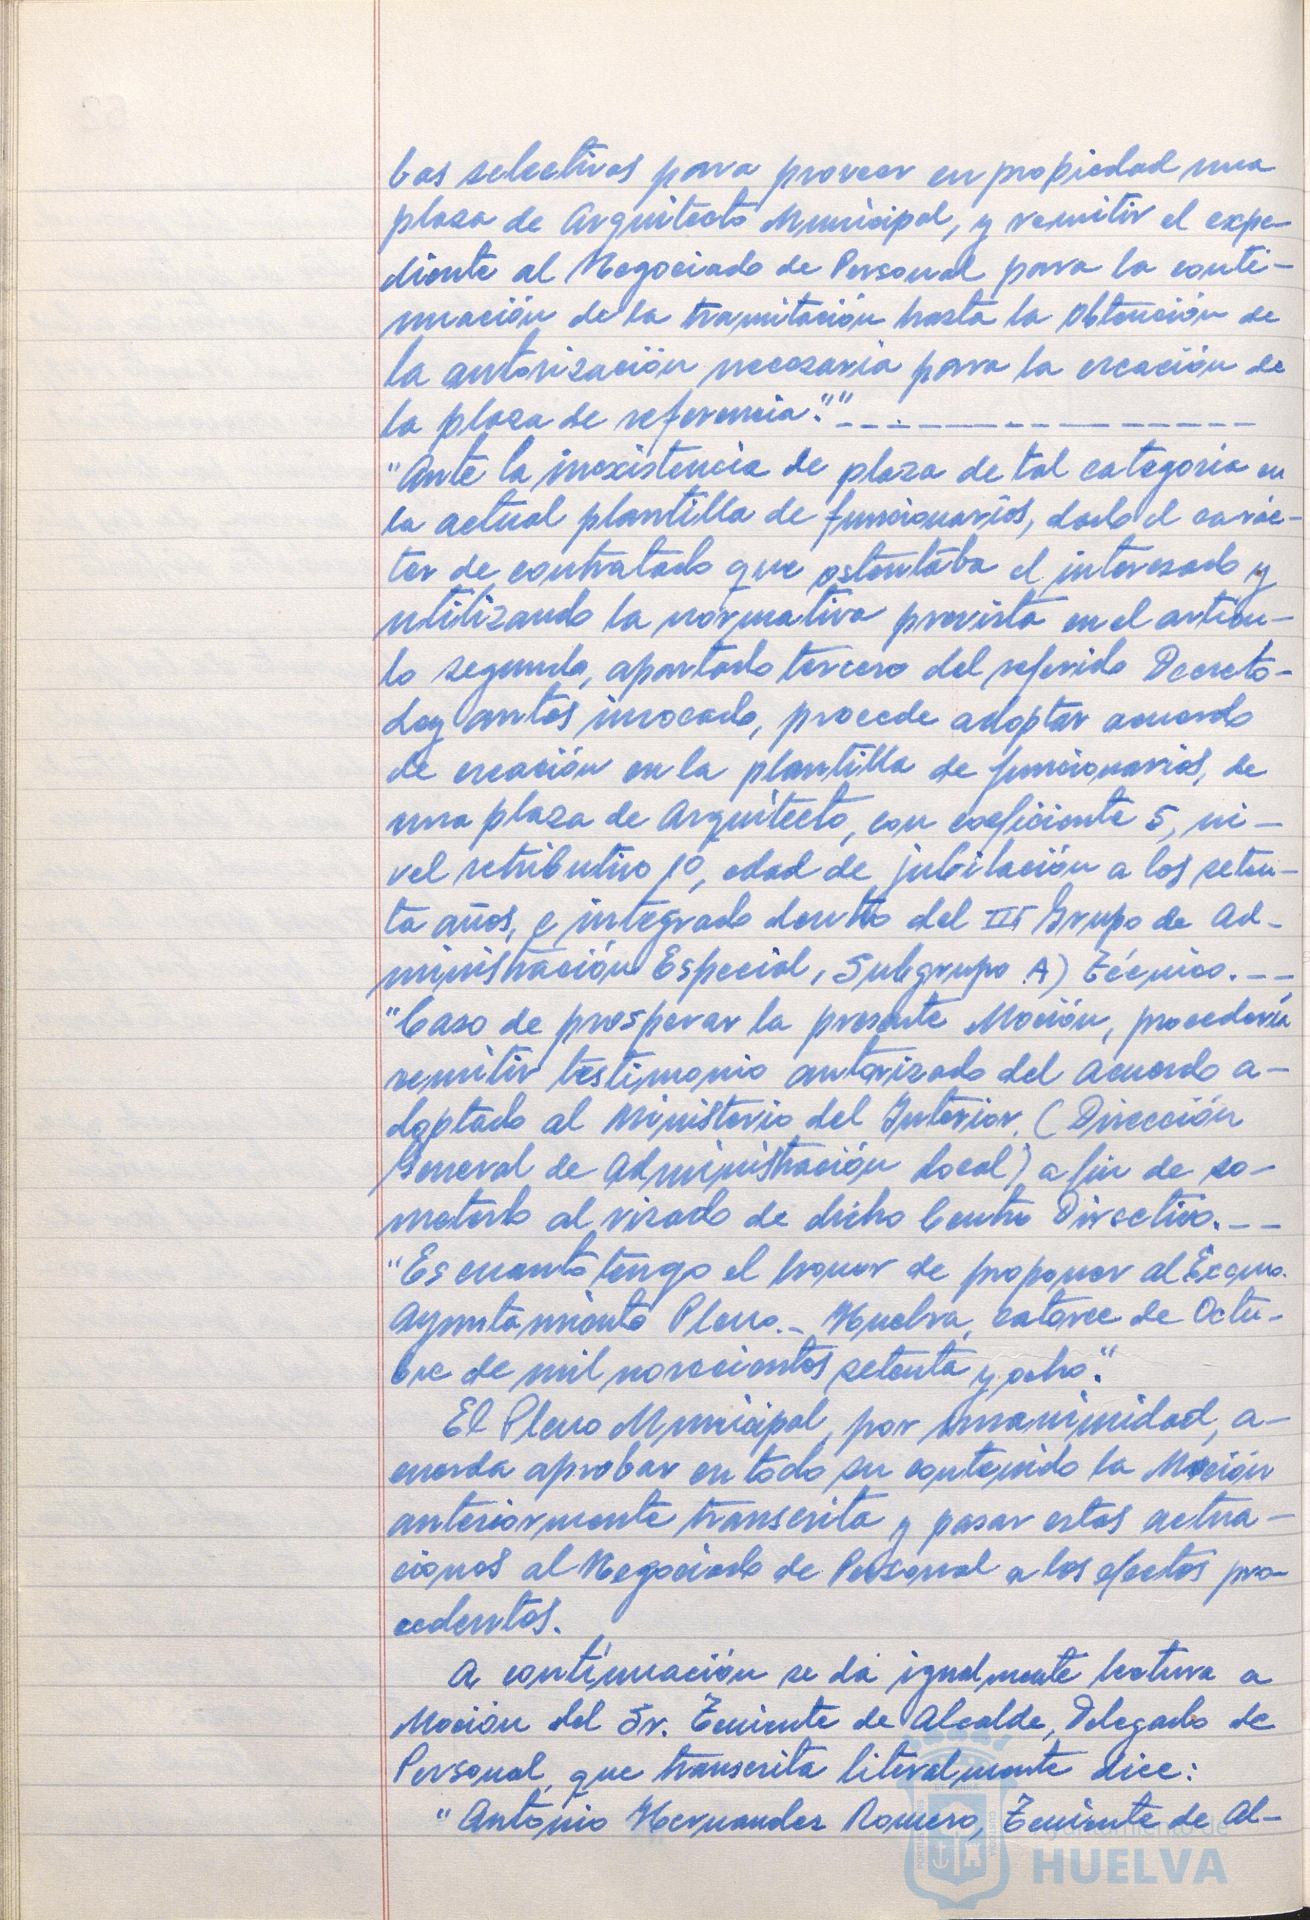 bas selectivas para proveer en propiedad una
plaza de Arquitecto Municipal, y remitir el expe-
diente al Negociado de Personal para la conti-
nuación de la tramitación hasta la obtención de
la autorización necesaria para la creación de
la plaza de referencia"."
"Ante la inexistencia de plaza de tal categoria en
la actual plantilla de funcionarios, dado el carác-
ter de contratado que ostentaba el interesado y
utilizando la normativa prevista en el articu-
lo segundo, apartado tercero del referido Decreto-
Ley antes invocado, procede adoptar acuerdo
de creación en la plantilla de funcionarios, de
una plaza de Arquitecto, con coeficiente 5, ni-
vel retributivo 10, edad de jubilación a los seten-
ta años, e integrado dentro del III Grupo de Ad-
ministración Especial, Subgrupo A) Técnico. --
"Caso de prosperar la presente Moción, procedería
remitir testimonio autorizado del acuerdo a-
doptado al Ministerio del Interior (Dirección
General de Administración Local) a fin de so-
meterlo al visado de dicho Centro Directivo. --
"Es cuanto tengo el honor de proponer al Excmo.
Ayuntamiento Pleno.- Huelva, catorce de Octu-
bre de mil novecientos setenta y ocho".
El Pleno Municipal, por unanimidad, a-
cuerda aprobar en todo su contenido la Moción
anteriormente transcrita y pasar estas actua-
ciones al Negociado de Personal a los efectos pro-
cedentes.
A continuación se dá igualmente lectura a
Moción del Sr. Teniente de Alcalde, Delegado de
Personal, que transcrita literalmente dice:
"Antonio Hernandez Romero, Teniente de Al-
Ayuntamiento de
HUELVA